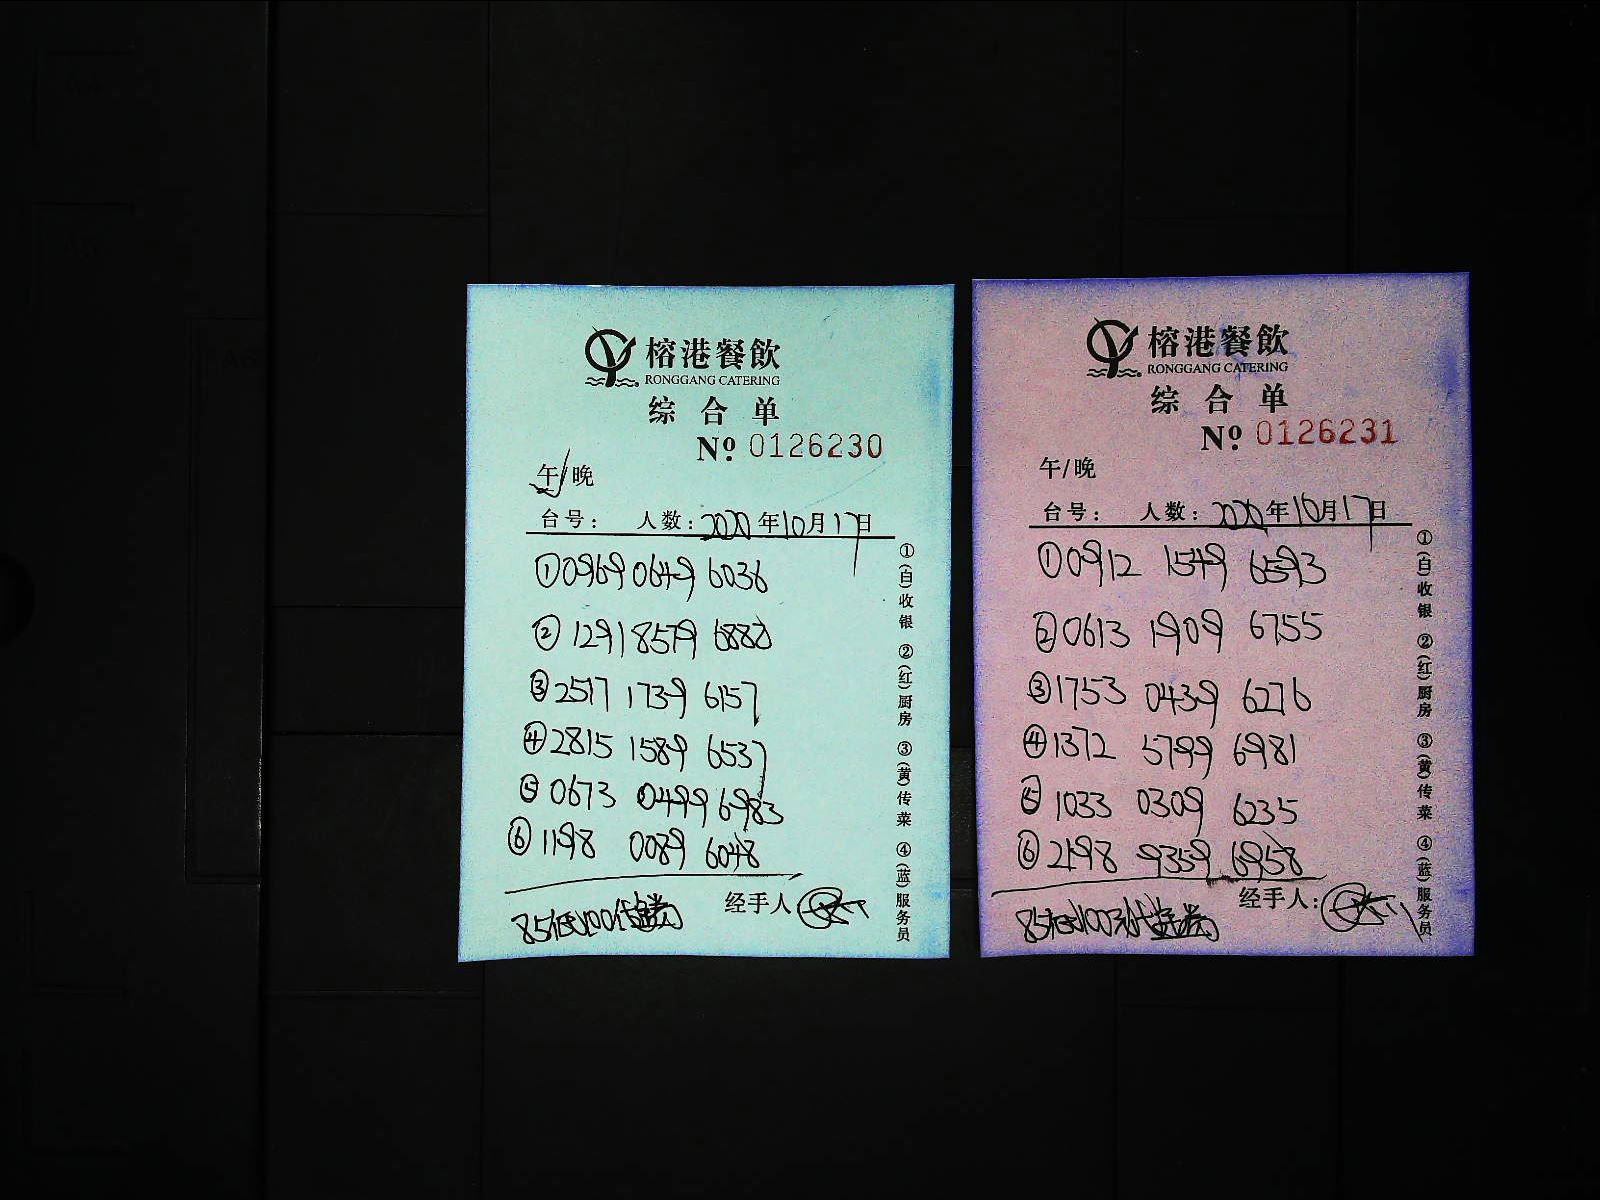 榕港餐飲
RONGGANG CATERING
综合单
No. 0126230
午/晚
台号： 人数：2020年10月17日
①0969 0649 6036
②1291 8579 6888
③2517 1739 6157
④2815 1589 6537
⑤0673 0499 6983
⑥1198 0089 6048
经手人
85抵100代
①(白)收银 ②(红)厨房 ③(黄)传菜 ④(蓝)服务员
榕港餐飲
RONGGANG CATERING
综合单
No. 0126231
午/晚
台号： 人数：2020年10月17日
①0912 1549 6593
②0613 1909 6755
③1753 0439 6276
④1372 5799 6981
⑤1033 0309 6235
⑥2198 9359 6958
经手人：
85抵100元代
①(白)收银 ②(红)厨房 ③(黄)传菜 ④(蓝)服务员